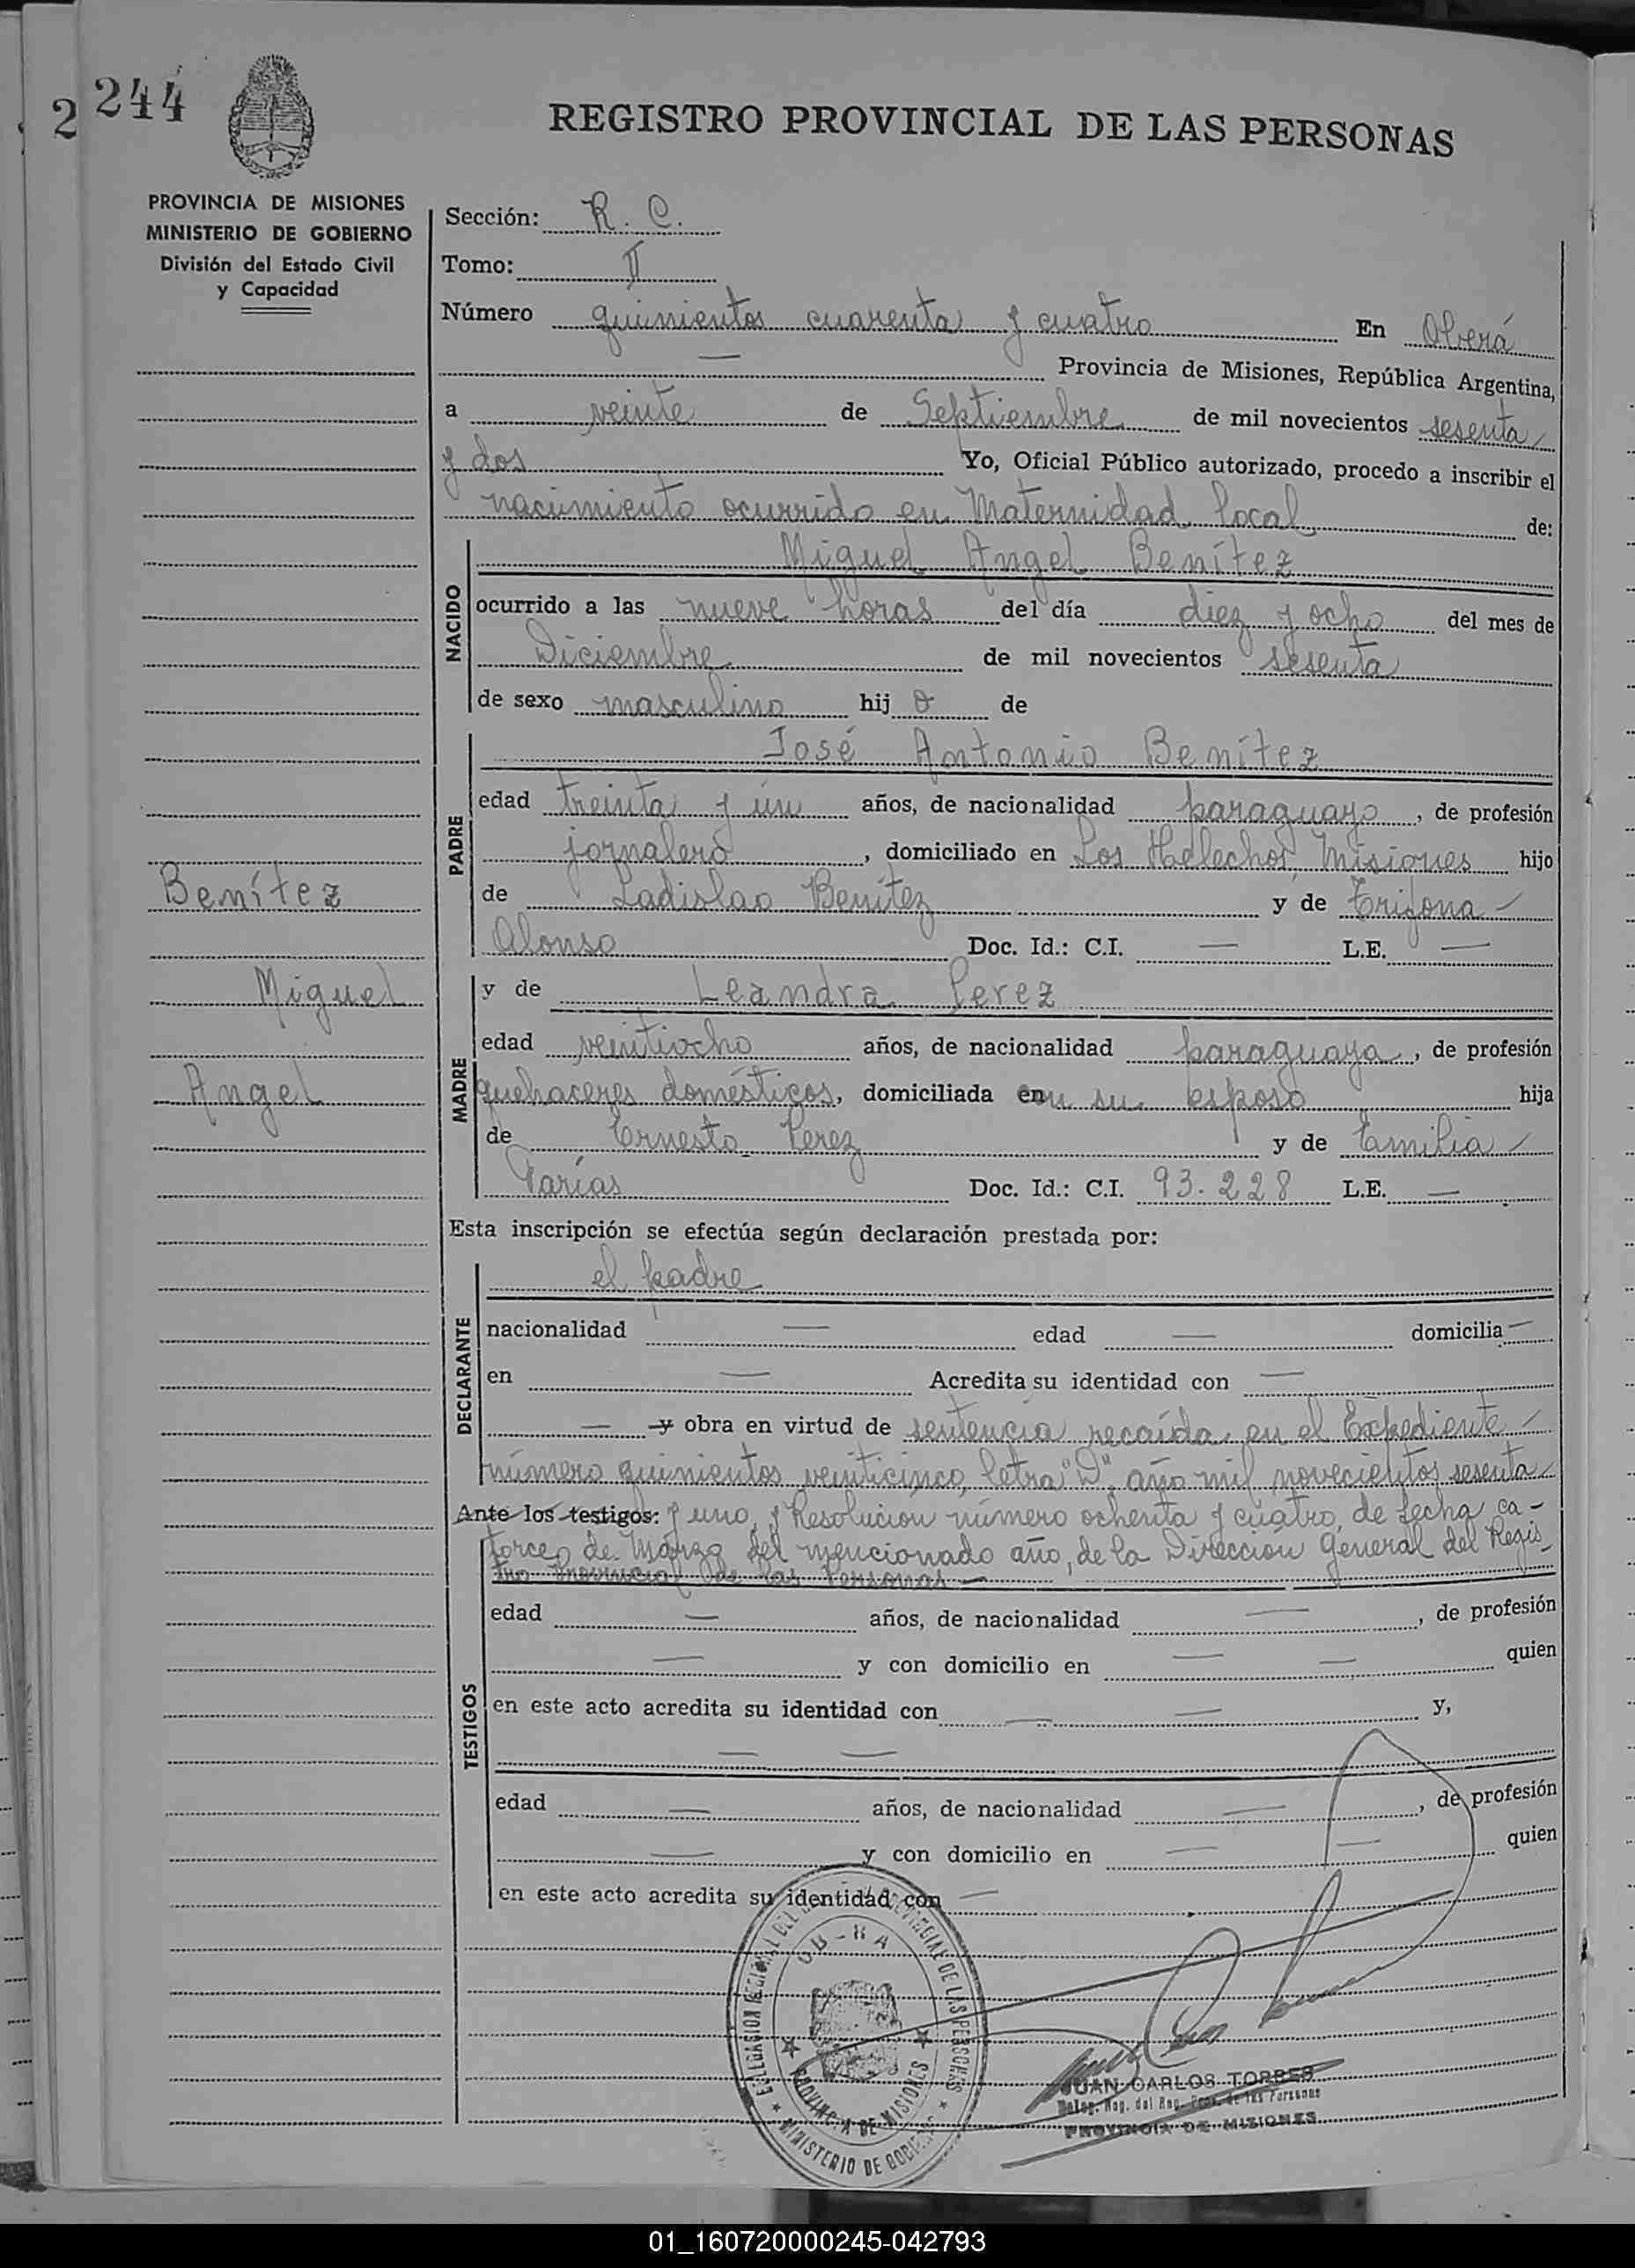 2 244
REGISTRO PROVINCIAL DE LAS PERSONAS
PROVINCIA DE MISIONES
MINISTERIO DE GOBIERNO
División del Estado Civil
y Capacidad
Sección: R. C.
Tomo: II
Número quinientos cuarenta y cuatro En Oberá
— Provincia de Misiones, República Argentina,
a veinte de Septiembre de mil novecientos sesenta
y dos Yo, Oficial Público autorizado, procedo a inscribir el
nacimiento ocurrido en Maternidad local de:
NACIDO
Miguel Angel Benítez
ocurrido a las nueve horas del día diez y ocho del mes de
Diciembre de mil novecientos sesenta
de sexo masculino hij o de
PADRE
José Antonio Benítez
edad treinta y un años, de nacionalidad paraguayo, de profesión
jornalero, domiciliado en Los Helechos, Misiones hijo
de Ladislao Benítez y de Trifona —
Alonso Doc. Id.: C.I. — L.E. —
Benítez
Miguel
Angel
MADRE
y de Leandra Perez
edad veintiocho años, de nacionalidad paraguaya, de profesión
quehaceres domésticos, domiciliada en su esposo hija
de Ernesto Perez y de Emilia
Farías Doc. Id.: C.I. 93.228 L.E. —
Esta inscripción se efectúa según declaración prestada por:
DECLARANTE
el padre
nacionalidad — edad — domicilia —
en — Acredita su identidad con —
— y obra en virtud de sentencia recaída en el Expediente
número quinientos veinticinco, letra "D", año mil novecientos sesenta
Ante los testigos: y uno, y Resolución número ochenta y cuatro, de fecha ca-
torce de Marzo del mencionado año, de la Dirección General del Regis-
tro Provincial de las Personas —
TESTIGOS
edad — años, de nacionalidad —, de profesión
— y con domicilio en — — quien
en este acto acredita su identidad con — — y,
— —
edad — años, de nacionalidad —, de profesión
— y con domicilio en — — quien
en este acto acredita su identidad con —
DELEGACION REGIONAL DEL PROVINCIAL DE LAS PERSONAS
OBERA
PROVINCIA DE MISIONES
MINISTERIO DE GOBIERNO
JUAN CARLOS TORRES
Deleg. Reg. del Reg. Prov. de las Personas
PROVINCIA DE MISIONES
01_160720000245-042793